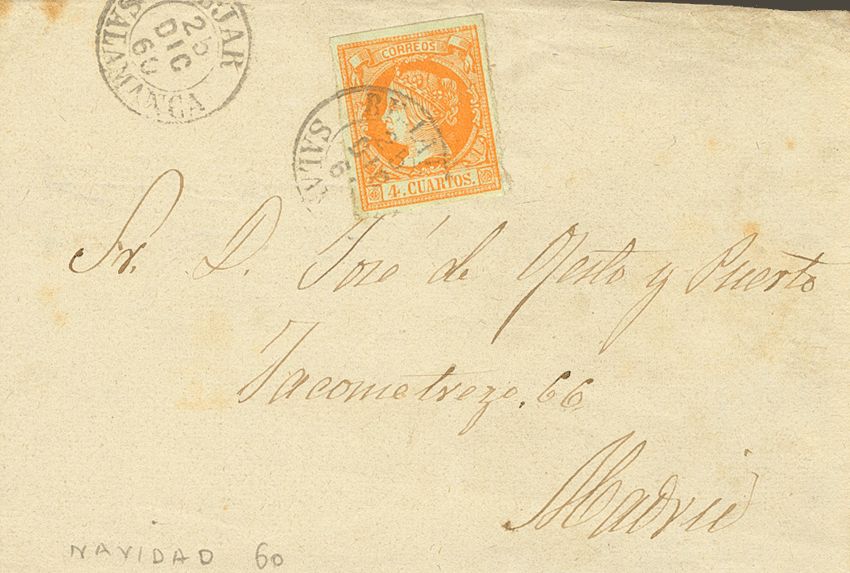 BEJAR
25
DIC
60
SALAMANCA
CORREOS
4. CUARTOS.
BEJAR
25
DIC
6
SALA
Sr. D. José de Gesto y Puerto
Jacometrezo. 66
Madrid
NAVIDAD 60